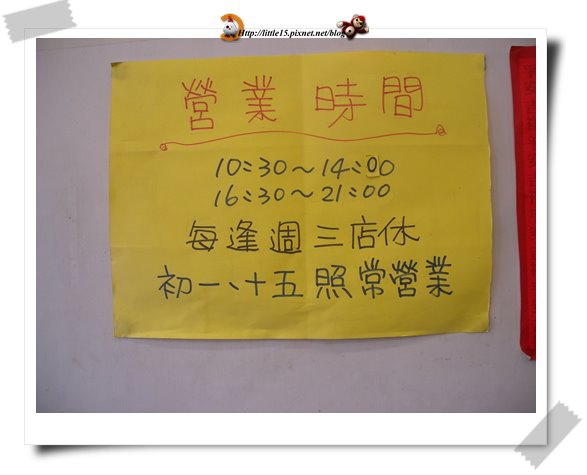 Http://little15.pixnet.net/blog
營業時間
10:30～14:00
16:30～21:00
每逢週三店休
初一、十五照常營業